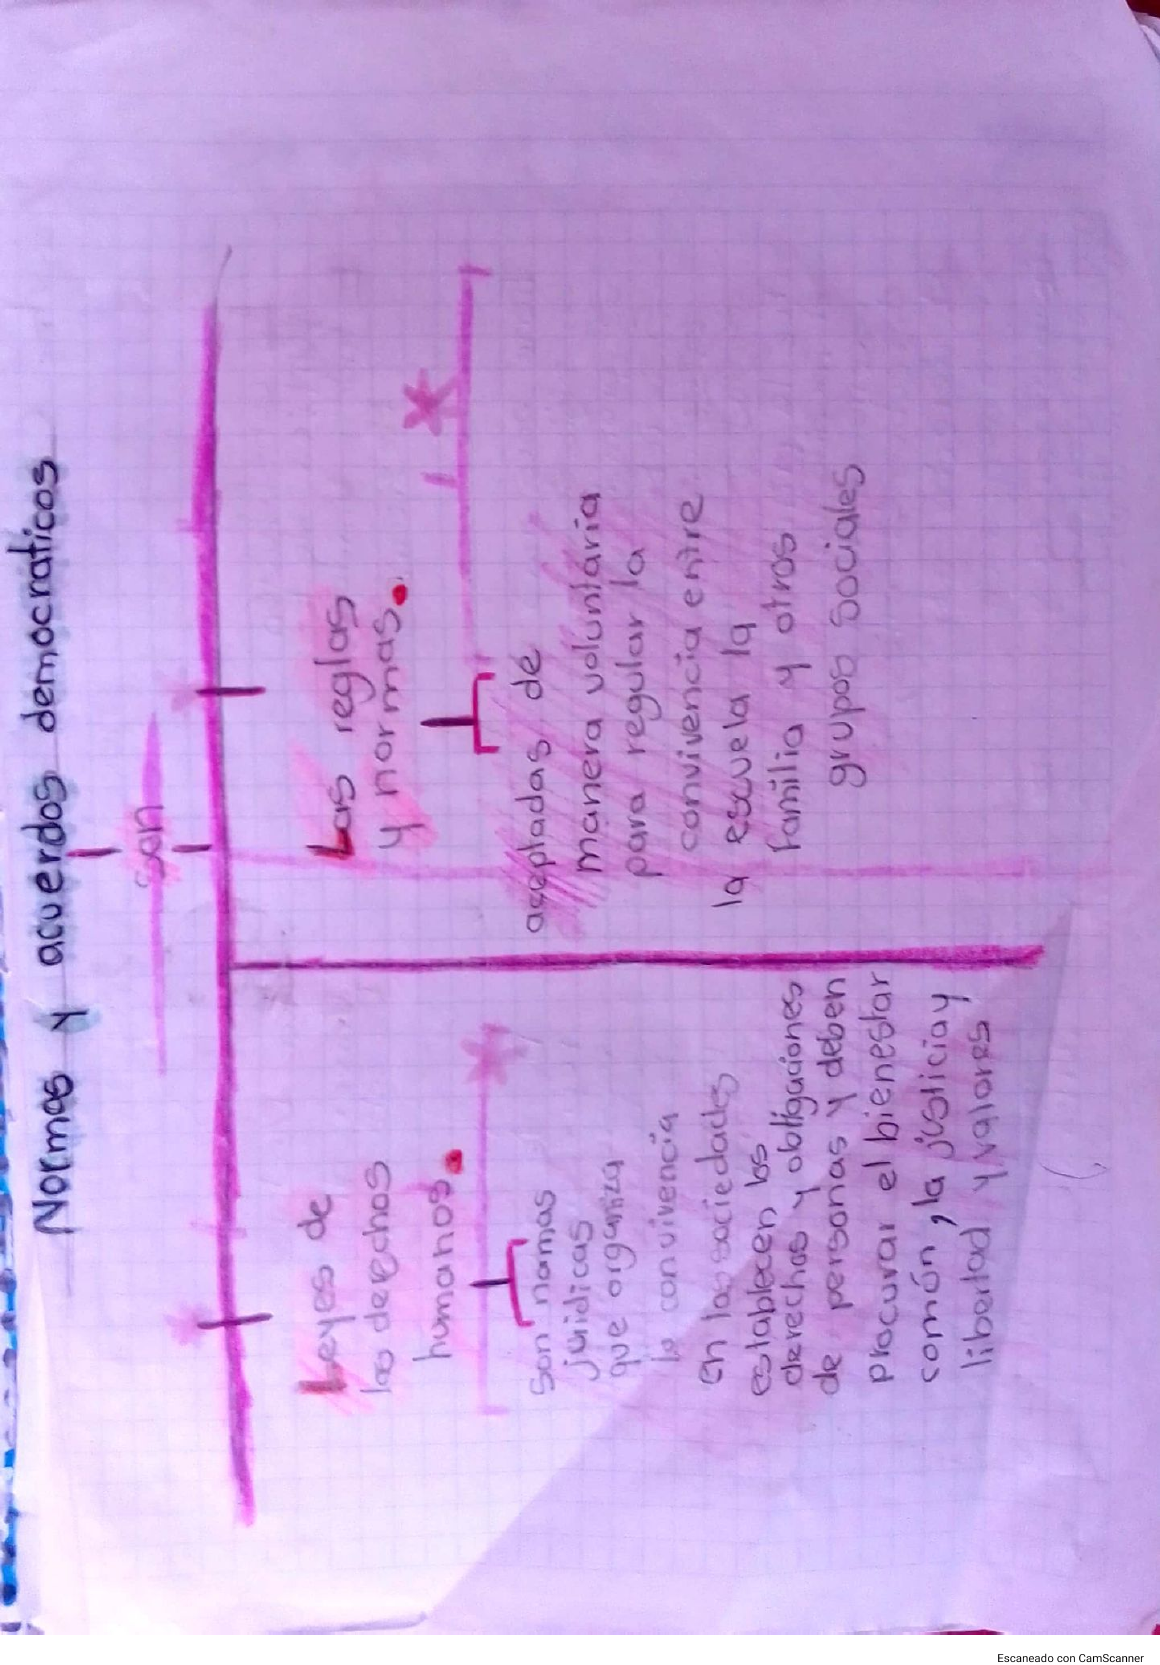 Normas y acuerdos democraticos
son
Leyes de
los derechos
humanos.
son normas
juridicas
que organiza
la convivencia
en las sociedades
establecen los
derechos y obligaciones
de personas y deben
procurar el bienestar
común, la justicia y
libertad y valores
Las reglas
y normas.
aceptadas de
manera voluntaria
para regular la
convivencia entre
la escuela la
familia y otros
grupos sociales
Escaneado con CamScanner